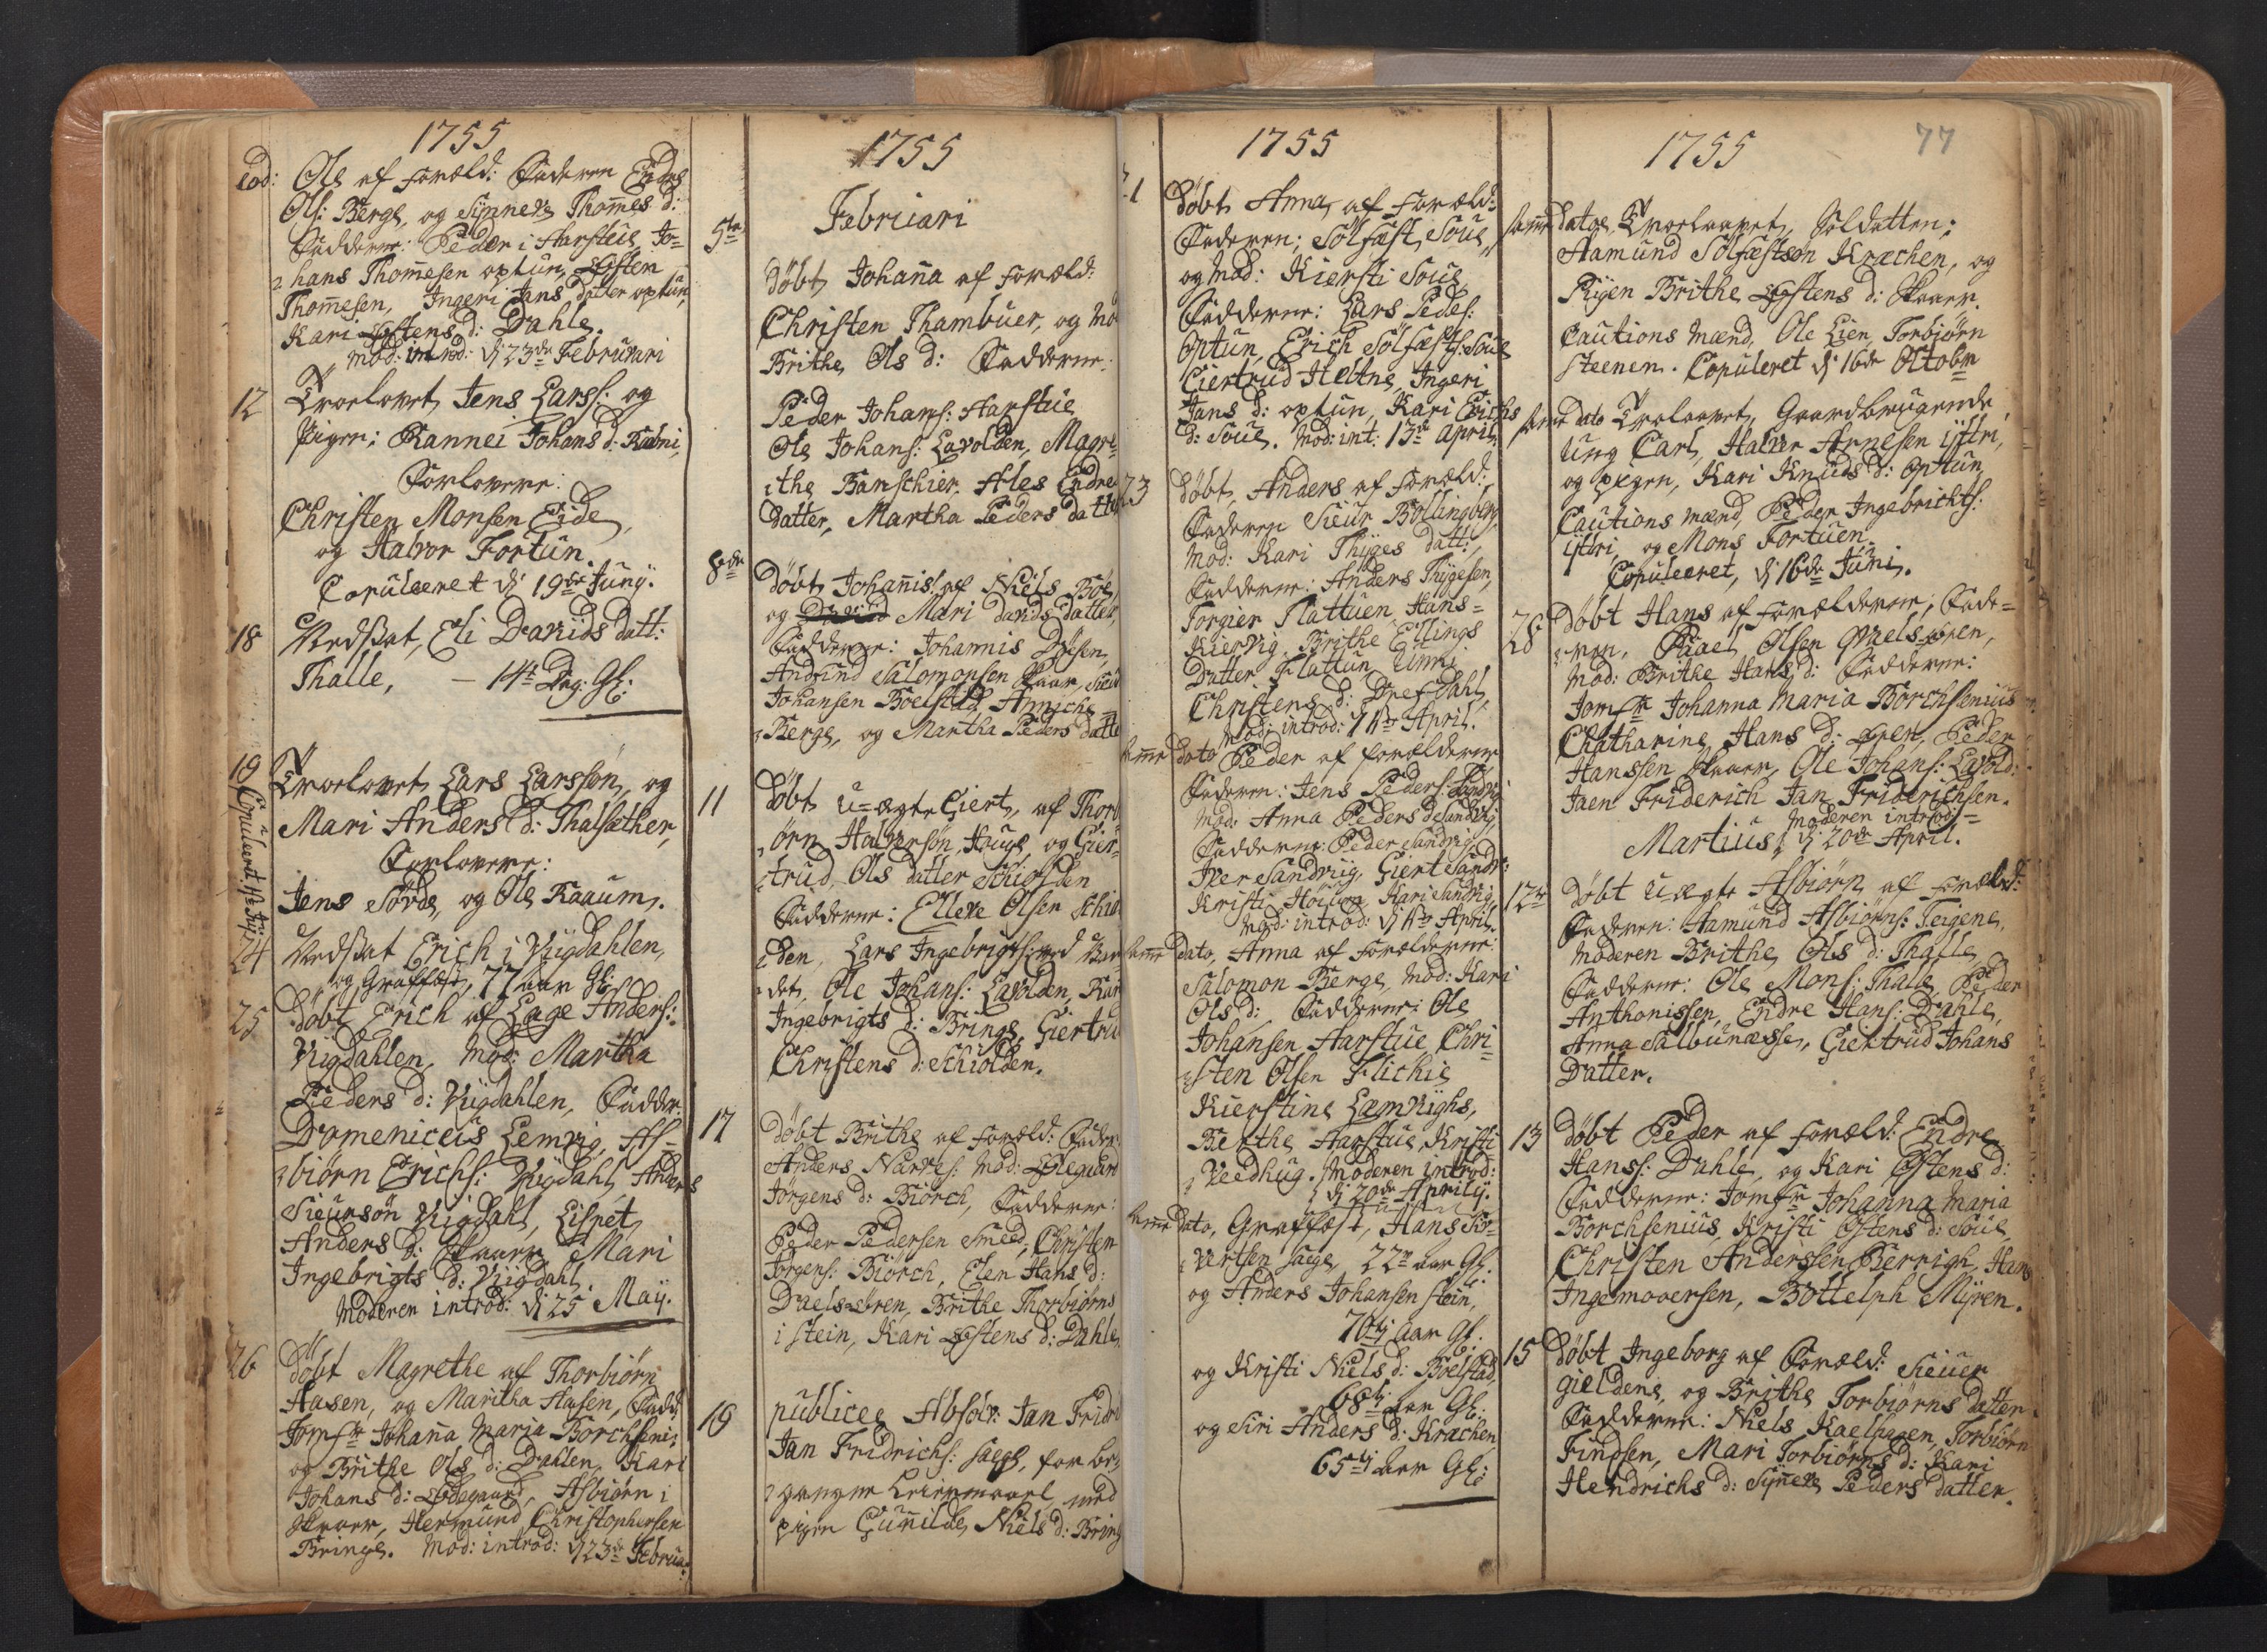 1755
eod: Ole af foræld: Faderen Endre
Ols: Berge, og Synneve Thom̄es d:
Fadderne: Peder i Harstue, Jo=
hans Thom̄esen optun, Østen
Thom̄esen, Ingeri Jans datter optun,
Kari Østens d: Dahle.
Mod: introd: d: 23de Februari
12 Troelovet Jens Larss: og
Pigen: Rannei Johans d:
Forlovere:
Christen Monsen Eide,
og Halvor Fortun.
Copuleeret d: 19de Junij.
18 Nedsat, Eli Davids datt:
Thalle, — 14 Dag: Gl:
19 Troelovet Lars Larssøn, og
Mari Anders d: Thalsæther,
Copuleret
Forlovere:
Jens Sørde, og Ole Kaaum.
24 Nedsat Erich i Vigdahlen,
og Graffæst, 77 aar Gl:
25 Døbt Erich af Lage Anders:
Vigdahlen, Mod: Martha
Peders d: Vigdahlen, Fadder:
Domenicus Lemvig, As=
biørn Erichs: Vigdahl, Anders
Sieursøn Vigdahl, Lispet
Anders d: Skaar, Mari
Ingebrigts d: Vigdahl.
Moderen introd: d: 25 Maij.
26 Døbt Magrethe af Thorbiørn
Hasen, og Maritha Hasen, Fadd:
Jomfr Johan̄a Maria Borchseni:
og Brithe Ols d: Dahlen, Kari
Johans d: Ødegaard, Asbiørn i
Skaar, Hermund Christophersen
Bringe. Mod: introd: d: 23de Februa:
1755
Februari
5te
Døbt Johan̄a af foræld:
Christen Thambuer, og Mo
Brithe Ols d: Fadderne:
Peder Johans: Harstue
Ole Johans: Lavolden, Magre
the Ales Endre
datter, Martha Peders datter
8de Døbt Johan̄is af Niels Boe,
og Mari Davids datter,
Fadderne: Johannis
Andund Salomonsen Skaar,
Johansen Boelstad, Anniche
Berge, og Martha Peders datte
11 Døbt u=ægte Giert, af Thorb
ørn Halversøn, Houge og Gier=
trud, Ols datter Schiolden
Fadderne: Elleve Olsen Schiol
den, Lars Ingebrigts: ved
det, Ole Johans: Lavolden, Kar
Ingebrigts d: Bringe, Giertru
Christens d: Schiolden.
17 Døbt Brithe af foræld: Fader:
Anders Narves: Mod: Ølegaard
Jørgens d: Biørch, Fadderne:
Peder Pedersen Smed, Christen
Jørgens: Biørch, Elen Hans d:
Daels=øren, Brithe Thorbiørns
i stein, Kari Østens d: Dahle,
19 publicee Absolv: Jan Fridri
Jan Fridrichs: Sæge, for be=
gangne Leiermaal med
pigen Gun̄ilde Niels d: Bring
1755
21 Døbt Anna af foræld:
Faderen: Sølfæst Soue,
og Mod: Kiersti Soue,
Fadderne: Lars Peders:
Optun, Erich Sølfæsts: Soue
Giertrud Heltne, Ingeri
Jans d: optun, Kari Erichs
d: Soue. Mod: int: 13de April:
23 Døbt, Anders af foræld:
Faderen Sieur Bollingberg,
Mod: Kari Thyges datt:
Fadderne: Anders Thygesen,
Torgier Flattuen, Hans=
Kiervig, Brithe Ellings
Datter Flattun, Unni
Christens d: Drefdahl,
Mod: introd: 1ste April.
Sam̄e dato Peder af forælderne
Faderen: Jens Peders: Sandvig
Mod: Anna Peders d Sandvig,
Fadderne: Peder Sandvig
Iver Sandvig, Giert Sandv:
Kristi Kari Sandvig,
Mod: introd: d: 1ste April.
Sam̄e dato, Anna af forælderne:
Salomon Berge, Mod: Kari
Ols d: Fadderne: Ole
Johansen Harstue, Chri=
sten Olsen Flichie
Kierstine Lemvighs,
Berthe Harstue, Kristi
Veedhug. Moderen introd:
d: 20de Aprily.
Same dato, Graffæst, Hans
versen Sæge, 22 aar Gl.
og Anders Johansen stein,
70tij aar Gl.
og Kristi Niels d: Boelstad,
68tj aar Gl:
og Siri Anders d: Krachen
65tj aar Gl:
1755 77
Same dato Troelovet, Soldatten:
Aamund Sølfæstsøn Krachen, og
Pigen Brithe Østens d: Skaar.
Cautions Mænd, Ole Lien, Torbiørn
Steenen. Copuleret d: 16de Octobr
Same dato Trolovet, Gaardbrugende
ung Carl, Halver Arnesen ijttri,
og pigen, Kari Knuds d: Optun,
Cautions mænd, Peder Ingebrichts:
ijttri, og Mons Fortuen.
Copuleeret, d: 16de Juni.
28 Døbt Hans af forælderne, Fade=
ren. Olsen
Mod: Brithe Hans d: Fadderne:
Jomfr Johanna Maria Borchsenius
Chatharine Hans d: Øren, Peder
Hanssen Skaar, Ole Johans: Lavold:
Jaen Friderich Jan Friderichsen.
Moderen introd:
Martius d: 20de April.
12te Døbt uægte Asbiørn af foræld:
Faderen: Aamund Asbiørns: Teigene,
Moderen Brithe Ols d: Thalle,
Fadderne: Ole Mons: Thalle, Peder
Anthonissen, Endre Hans: Dahle,
Anna Salbunæsse, Giertrud Johans
Datter.
13 Døbt Peder af foræld: Endre
Hanss: Dahle, og Kari Østens d:
Fadderne: Jomfr Johanna Maria
Borchsenius, Kristi Østens d: Soue,
Christen Anderssen Berrigh, Hans
Ingemoversen, Bottelph Myren.
15 Døbt Ingeborg af Foræld: Sieuer
gieldene, og Brithe Torbiørns datter.
Fadderne: Niels Kaelhagen, Torbiørn
Findsen, Mari Torbiørns d: Kari
Hendrichs d: Syneve Peders datter.